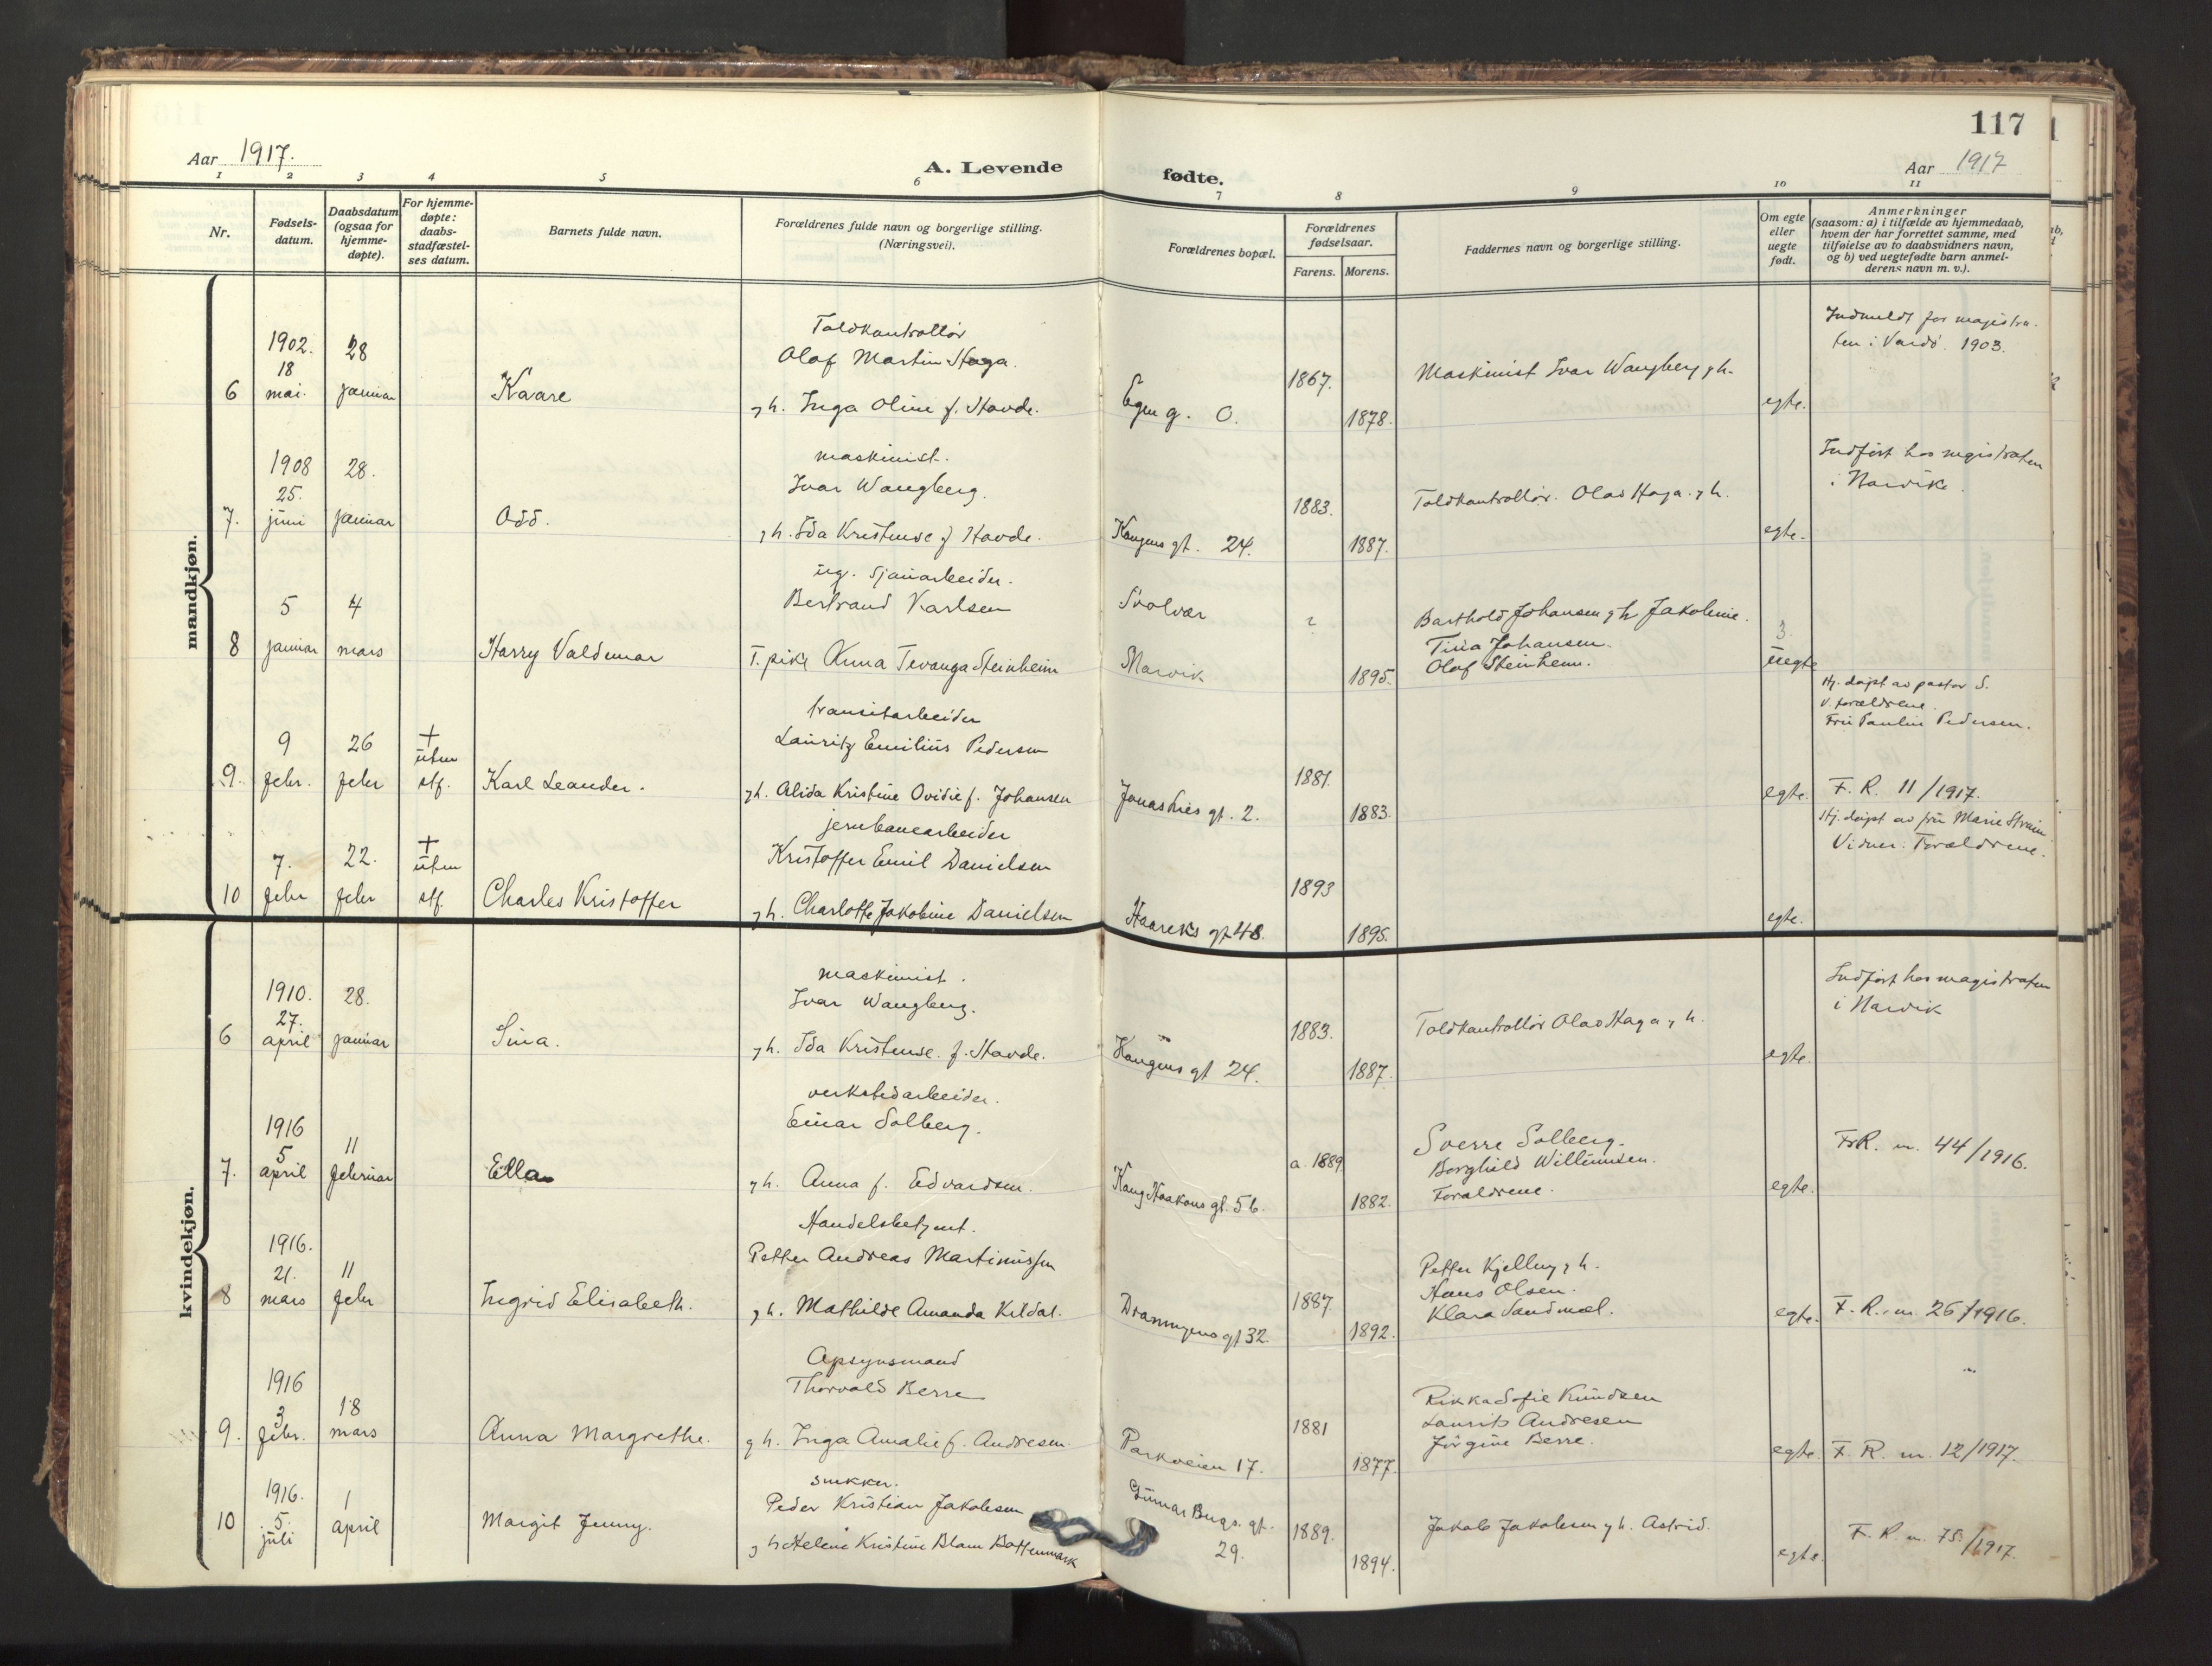 117
Aar 1917.
A. Levende
fødte.
Aar 1917
1 2 3 4 5 6 7 8 9 10 11
Nr.
Fødsels-
datum.
Daabsdatum
(ogsaa for
hjemme-
døpte).
For hjemme-
døpte:
daabs-
stadfæstel-
ses datum.
Barnets fulde navn.
Forældrenes fulde navn og borgerlige stilling.
(Næringsvei).
Forældrenes bopæl.
Forældrenes
fødselsaar.
Farens. Morens.
Faddernes navn og borgerlige stilling.
Om egte
eller
uegte
født.
Anmerkninger
(saasom: a) i tilfælde av hjemmedaab,
hvem der har forrettet samme, med
tilføielse av to daabsvidners navn,
og b) ved uegtefødte barn anmel-
derens navn m. v.).
mandkjøn.
6
1902.
18
mai.
28
januar
Kaare
Toldkontrollør
Olaf Martin Haga.
g h. Inga Oline f. Hovde.
Egen g. O.
1867.
1878.
Maskinist Ivar Wangberg g h.
egte.
Indmeldt for magistra-
ten i Vardø. 1903.
7.
1908
25.
juni
28.
januar
Odd.
maskinist.
Ivar Wangberg.
g h. Ida Kristense f Hovde.
Kongens gt. 24.
1883.
1887.
Toldkontrollør. Olav Haga. g h.
egte.
Indført hos magistraten
i Narvik.
8
5
januar
4
mars
Harry Valdemar
ug. Sjauarbeider.
Bertrand Karlsen
T. pike Anna Tevanga Steinheim
Svolvær
Narvik
?
1895.
Barthold Johansen g h Jakobine.
Tina Johansen.
Olaf Steinheim.
3.
uegte
9.
9
febr.
26
febr
+
uten
stf.
Karl Leander.
transitarbeider
Lauritz Emilius Pedersen
g h. Alida Kristine Ovidie f. Johansen
Jonas Lies gt. 2.
1881.
1883.
egte.
Hj. døpt av pastor S.
v. forældrene.
Fru Paulin Pedersen.
F. R. 11/1917.
10
7.
febr
22.
febr
+
uten
stf.
Charles Kristoffer
jernbanearbeider
Kristoffer Emil Danielsen
g h. Charlotte Jakobine Danielsen
Haareks gt 48.
1893
1895.
egte.
Hj. døpt av fru Marie Strøm
Vidner: Forældrene.
kvindekjøn.
6
1910.
27.
april
28.
januar
Sina.
maskinist.
Ivar Wangberg.
g h. Ida Kristense. f. Hovde.
Kongens gt 24.
1883.
1887.
Toldkontrollør Olav Haga g h.
egte.
Indført hos magistraten
i Narvik
7.
1916
5
april
11
februar
Ella
verkstedarbeider.
Einar Solberg.
g h. Anna f. Edvardsen.
Kong Haakons gt. 56.
a. 1889
1882.
Sverre Solberg.
Borghild Willumsen.
Forældrene.
egte.
F.R. nr. 44/1916.
8
1916.
21.
mars
11
febr
Ingrid Elisabeth.
Handelsbetjent.
Petter Andreas Martinussen
g h. Mathilde Amanda Kildal.
Dronningens gt 32.
1887.
1892.
Petter Kjelling g h.
Hans Olsen.
Klara Sandmæl.
egte.
F. R. nr. 26/1916.
9.
1916
3
febr.
18
mars
Anna Margrethe.
Opsynsmand
Thorvald Berre
g h. Inga Amalie f. Andresen
Parkveien 17.
1881
1877.
Rikka Sofie Knudsen
Laurits Andresen
Jørgine Berre.
egte.
F. R. nr. 12/1917.
10
1916.
5.
juli
1
april
Margit Jenny.
snekker.
Peder Kristian Jakobsen
g h Helene Kristine Blam Bottenmark
Gunnar Bugs. gt.
29.
1889.
1894.
Jakob Jakobsen g h. Astrid.
egte.
F. R. nr. 75./1917.